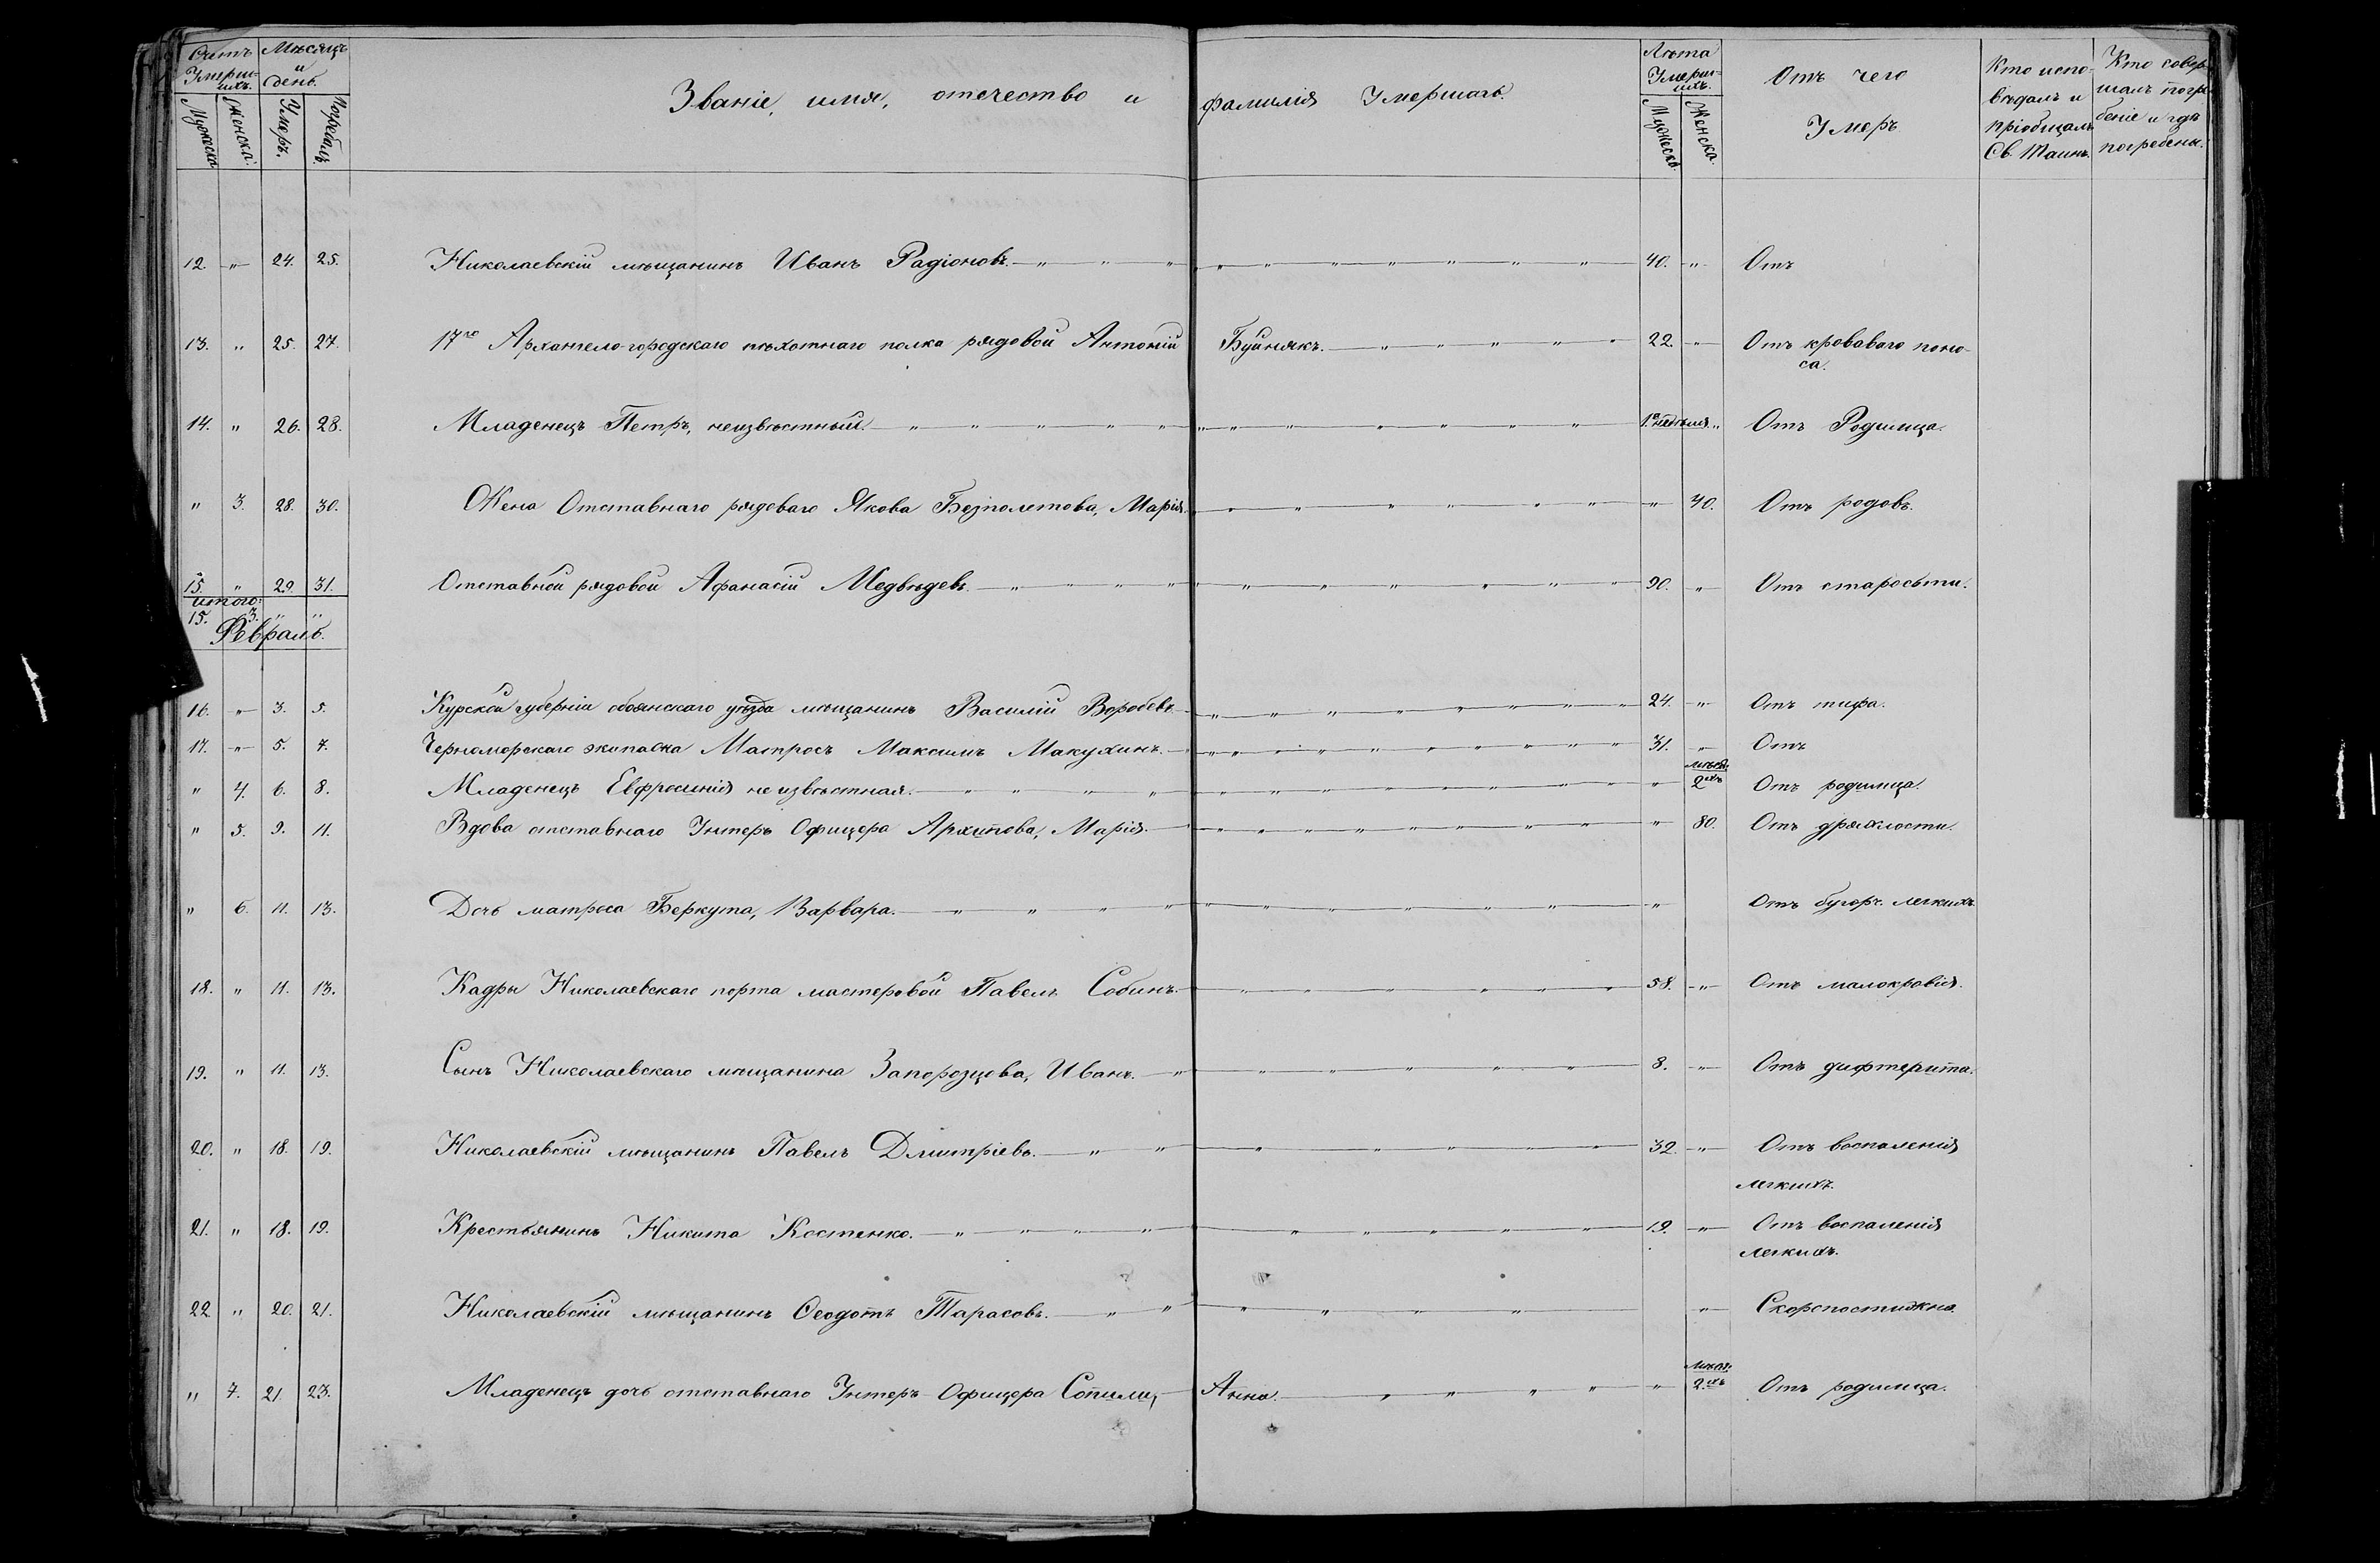 Счетъ Умершихъ. Мѣсяцъ и день. Званіе, имя, отечество и фамилія Умершаго. Лѣта Умершихъ. Отъ чего Умеръ Кто испо-вѣдалъ и пріобщалъ Св. Таинъ. Кто совер-шалъ погре-беніе и гдѣ погребены.
Мужеска Женска. Умеръ. Погребалъ. Мужеска. Женска.
12. " 24. 25. Николаевскій мѣщанинъ Иванъ Радіоновъ. 40. " Отъ
13. " 25. 27. 17го Архангело-городскаго пѣхотнаго полка рядовой Антоній Буйнякъ. 22. " Отъ кроваваго поно-
са.
14. " 26. 28. Младенецъ Петръ, неизвѣстный. 1а недѣля. " Отъ Родимца.
" 3. 28. 30. Жена Отставнаго рядоваго Якова Безполетова, Марія. " 40. Отъ родовъ.
15. " 29. 31. Отставной рядовой Афанасій Медвѣдевъ. 90. " Отъ старосьти.
итого:
15. 3. " "
Февраль.
16. " 3. 5. Курской губерніи обоянскаго уѣзда мѣщанинъ Василій Воробьевъ 24. " Отъ тифа.
17. " 5. 7. Черноморскаго экипажа Матросъ Максимъ Макухинъ. 31. " Отъ
" 4. 6. 8. Младенецъ Евфросинія неизвѣстная. " 2хъ Отъ родимца.
" 5. 9. 11. Вдова отставнаго Унтеръ Офицера Архипова, Марія. " 80. Отъ дряхлости.
" 6. 11. 13. Дочь матроса Беркута, Варвара. " Отъ бугорч. легкихъ
18. " 11. 13. Кадры Николаевскаго порта мастеровой Павелъ Собинъ. 58. " Отъ малокровія.
19. " 11. 13. Сынъ Николаевскаго мѣщанина Запорозцова, Иванъ. 8. " Отъ дифтерита.
20. " 18. 19. Николаевскій мѣщанинъ Павелъ Дмитріевъ. 32. " Отъ воспаленія
легкихъ.
21. " 18. 19. Крестьянинъ Никита Костенко. 19. " Отъ воспаленія
легкихъ.
22. " 20. 21. Николаевскій мѣщанинъ Ѳеодотъ Тарасовъ. " Скоропостижно.
" 7. 21. 23. Младенецъ дочь отставнаго Унтеръ-Офицера Сопили, Анна. " 2.хъ Отъ родимца.